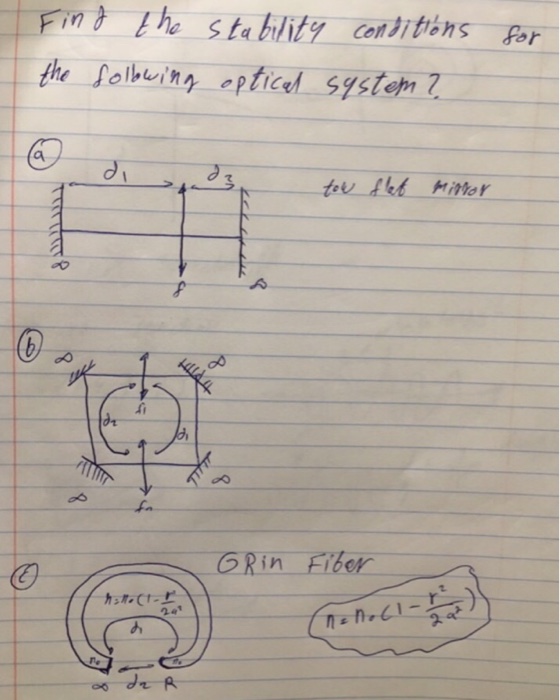 Find the stability conditions for
the following optical system?
a
d1 d3 tow flat mirror
∞ f ∞
b
∞ ∞
f1
d2 d1
∞ ∞
f2
c GRin Fiber
n=n0(1-r²/2a² n=n0(1-r²/2a²)
d1
n0 n0
∞ d2 R